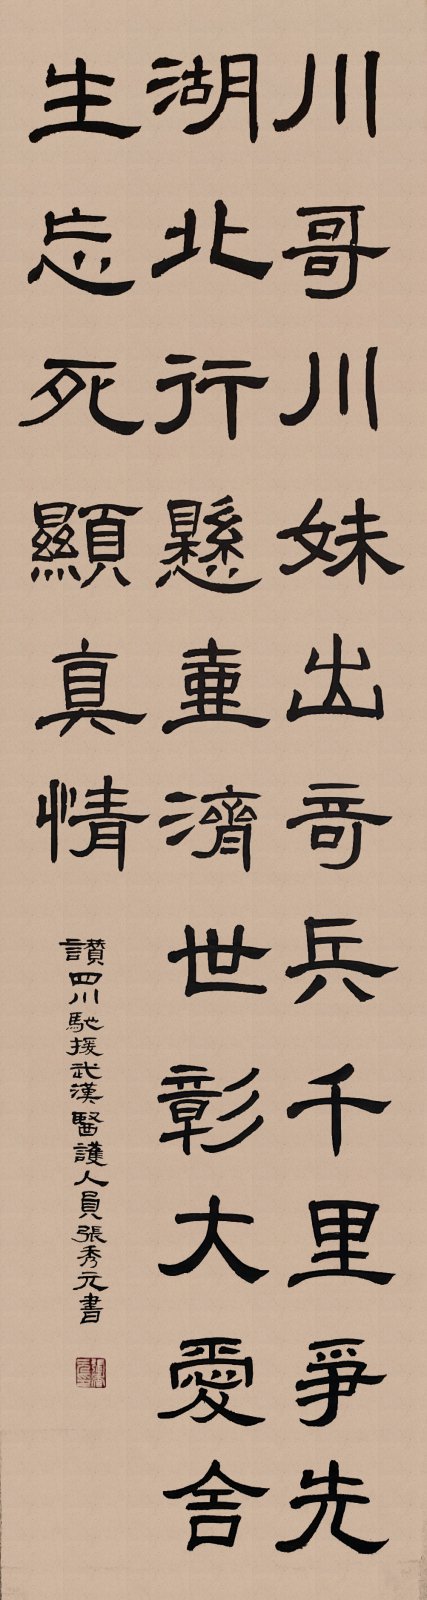 川哥川妹出奇兵千里爭先
湖北行懸壺濟世彰大愛舍
生忘死顯真情
讚四川馳援武漢醫護人員張秀元書